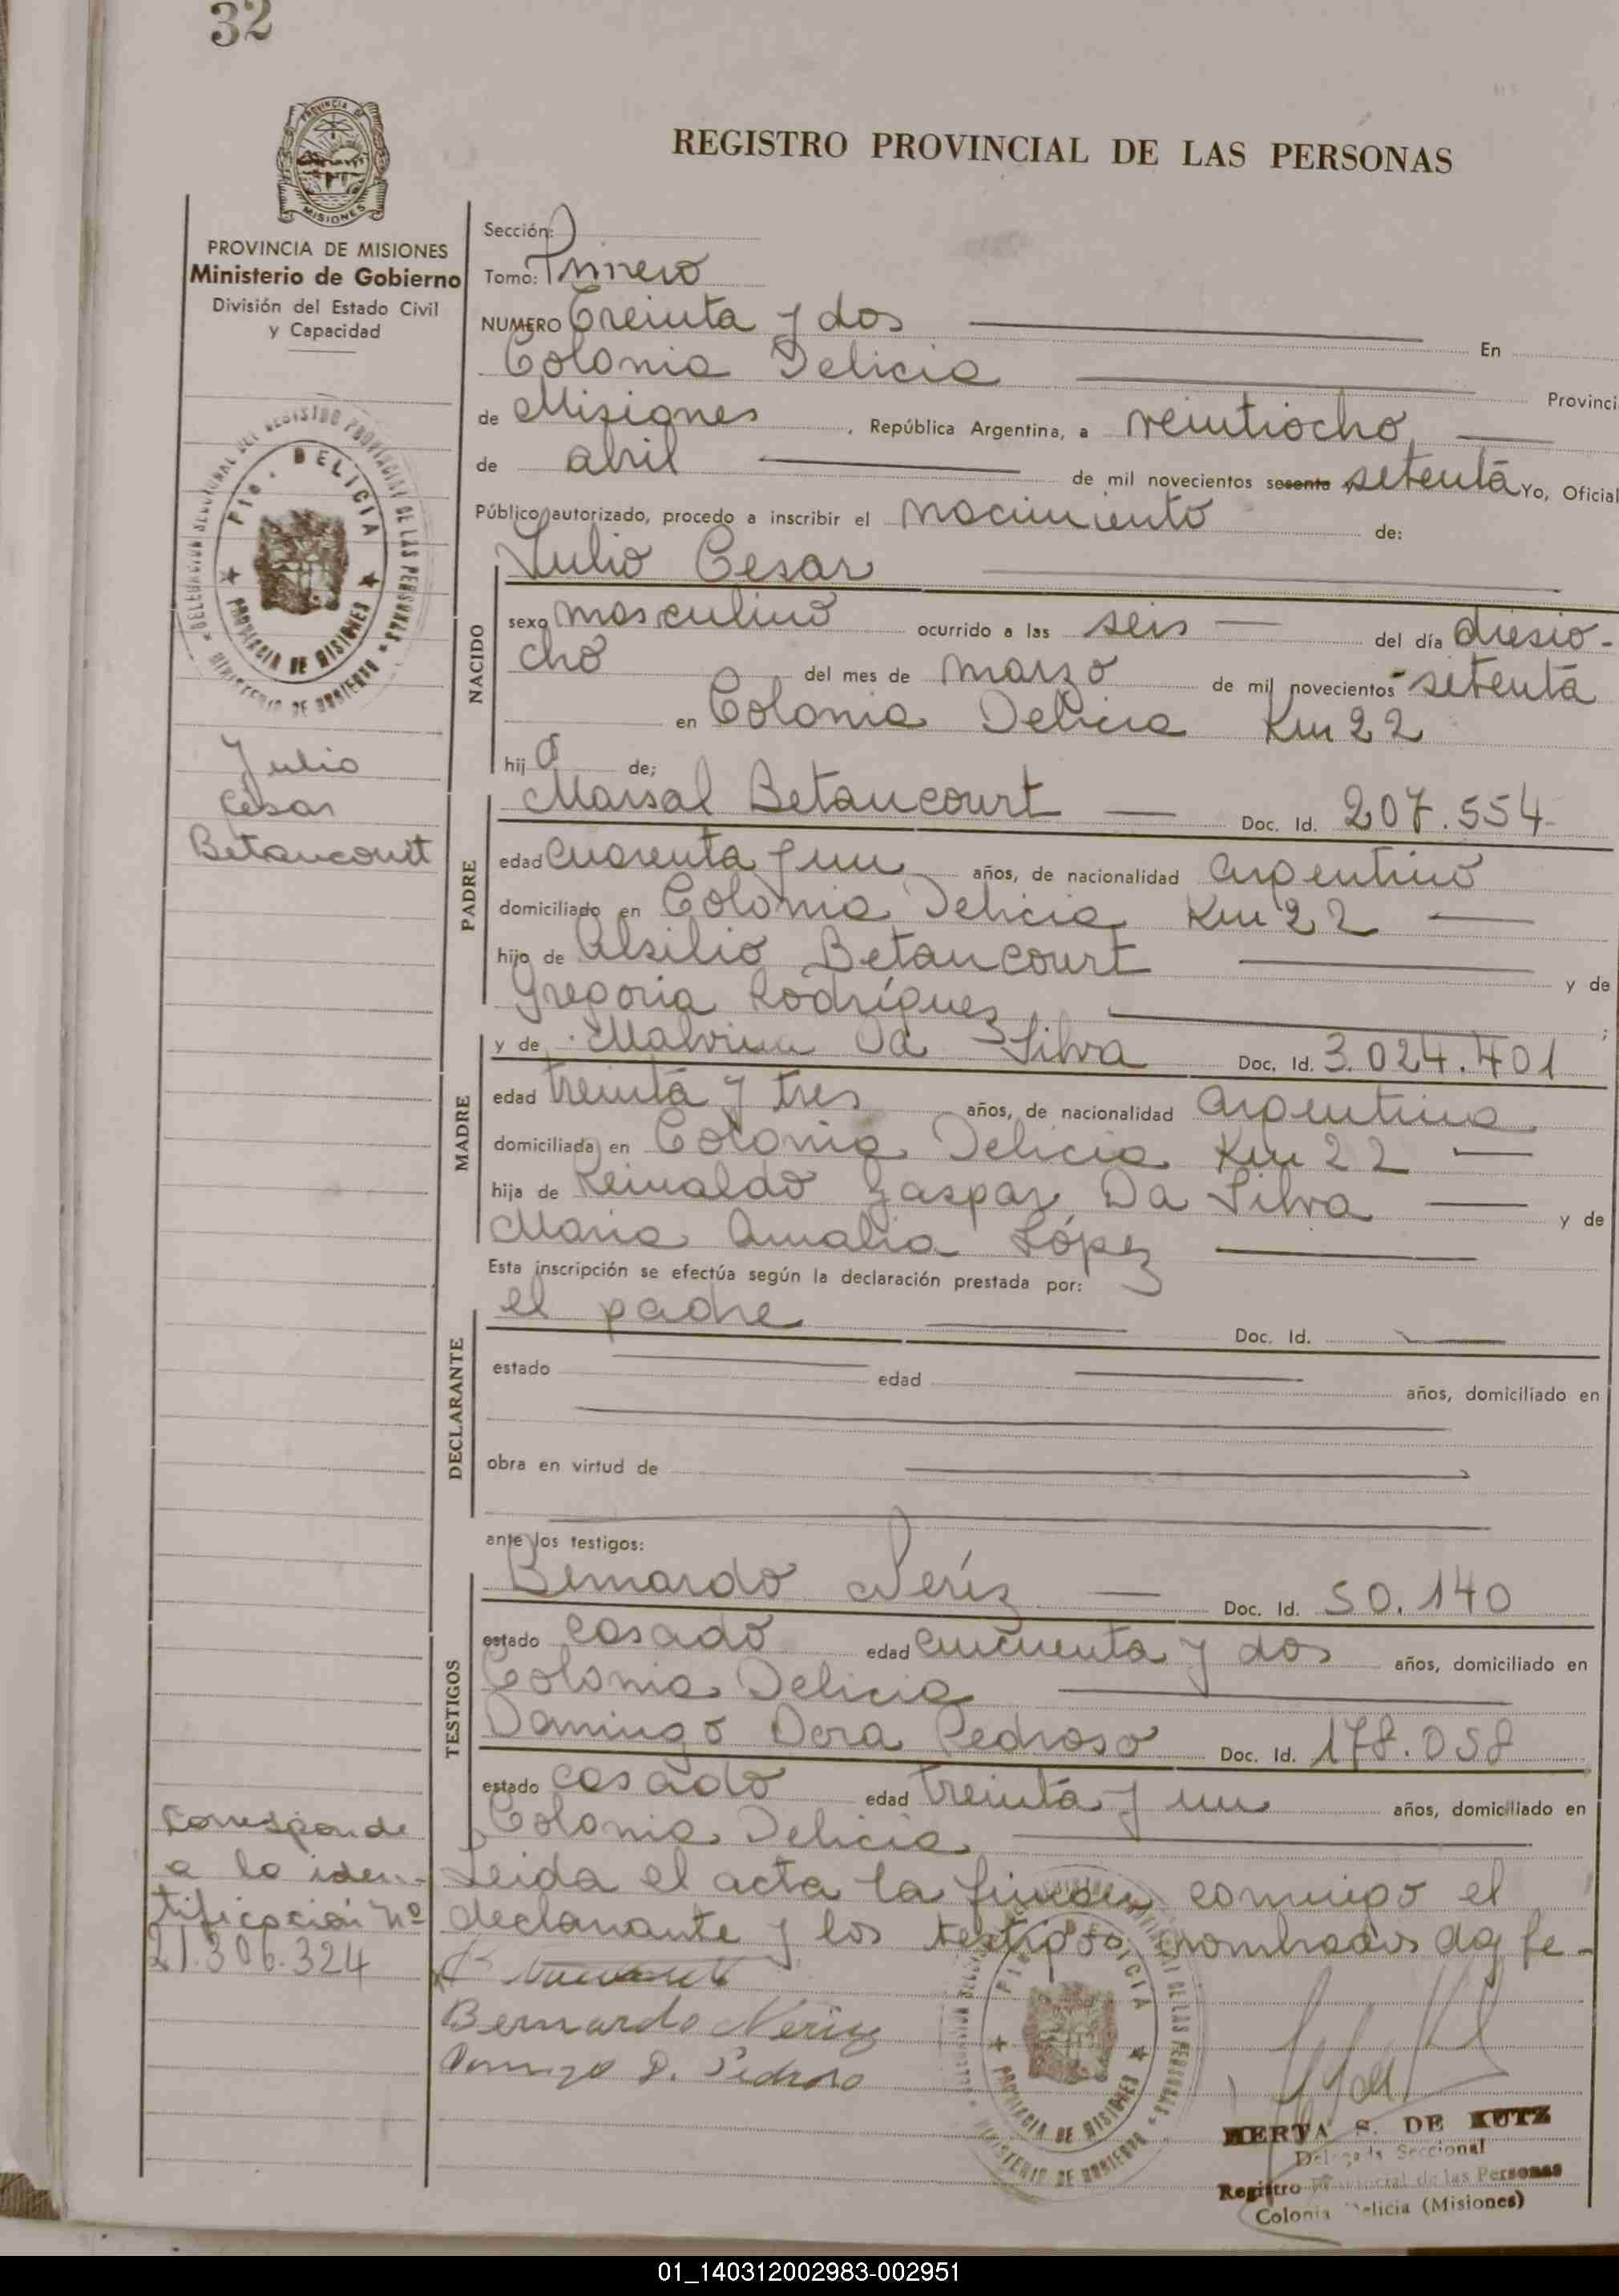 32
REGISTRO PROVINCIAL DE LAS PERSONAS
PROVINCIA DE MISIONES
Ministerio de Gobierno
División del Estado Civil
y Capacidad
Sección:
Tomo: Primero
NUMERO Treinta y dos En
Colonia Delicia Provinci
de Misiones, República Argentina, a veintiocho
de abril de mil novecientos sesenta y setenta Yo, Oficial
Público autorizado, procedo a inscribir el nacimiento de:
Julio Cesar
NACIDO
sexo masculino ocurrido a las seis del día diesio-
cho del mes de marzo de mil novecientos setenta
en Colonia Delicia Km 22
hijo de;
Julio
César
Betancourt
PADRE
Marsal Betancourt Doc. Id. 207.554
edad cuarenta y un años, de nacionalidad argentino
domiciliado en Colonia Delicia Km 22
hijo de Alsilio Betancourt y de
Gregoria Rodrígues ;
MADRE
y de Malvina Da Silva Doc. Id. 3.024.401
edad treinta y tres años, de nacionalidad argentina
domiciliada en Colonia Delicia Km 22
hija de Reinaldo Gaspar Da Silva y de
Maria Amalia López
Esta inscripción se efectúa según la declaración prestada por:
DECLARANTE
el padre Doc. Id.
estado edad años, domiciliado en
obra en virtud de
ante los testigos:
TESTIGOS
Bernardo Neríz Doc. Id. 50.140
estado casado edad cincuenta y dos años, domiciliado en
Colonia Delicia
Domingo Dora Pedroso Doc. Id. 178.058
estado casado edad treinta y un años, domiciliado en
Colonia Delicia
Leida el acta la firman conmigo el
declarante y los testigos nombrados doy fe-
Corresponde
a la iden-
tificación Nº
21.306.324
Bernardo Neriz
Domingo D. Pedroso
HERTA S. DE KUTZ
Delegada Seccional
Registro Provincial de las Personas
Colonia Delicia (Misiones)
01_140312002983-002951